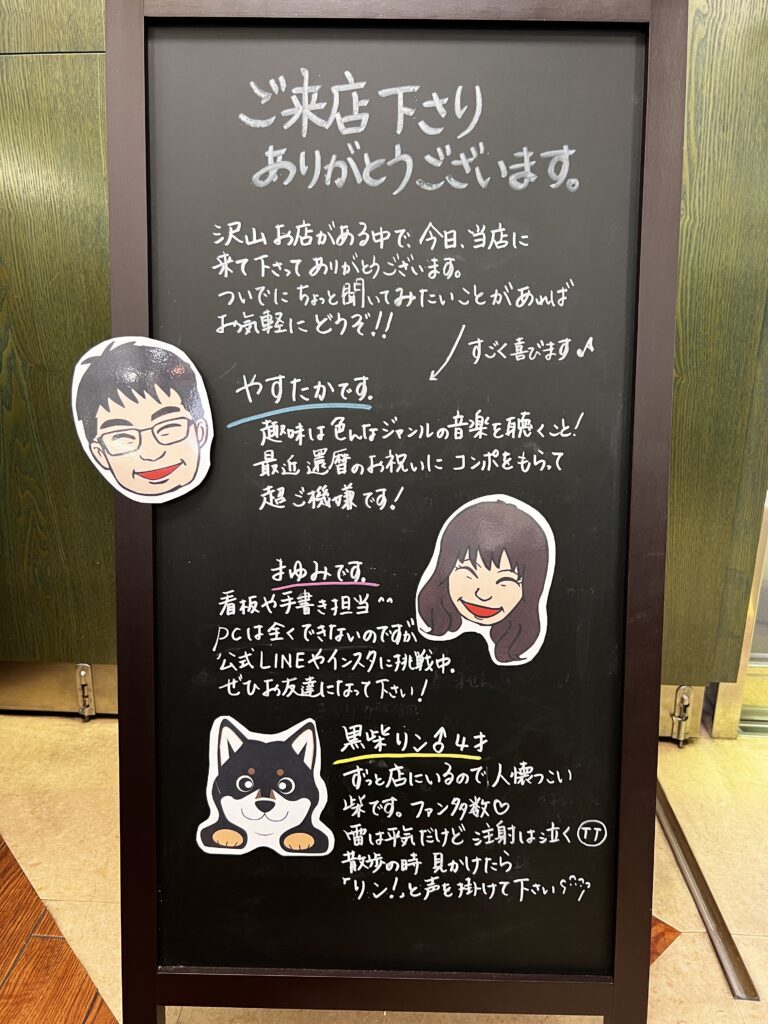 ご来店下さり
ありがとうございます。
沢山お店がある中で、今日、当店に
来て下さってありがとうございます。
ついでにちょっと聞いてみたいことがあれば
お気軽にどうぞ!!
すごく喜びます♪
やすたかです.
趣味は色んなジャンルの音楽を聴くこと!
最近還暦のお祝いにコンポをもらって
超ご機嫌です!
まゆみです.
看板や手書き担当^^
PCは全くできないのですが
公式LINEやインスタに挑戦中.
ぜひお友達になって下さい!
黒柴リン♂4才
ずっと店にいるので、人懐っこい
柴です。ファン多数♡
雷は平気だけど注射は泣くTT
散歩の時見かけたら
「リン!」と声を掛けて下さい